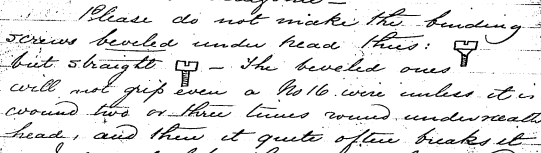 Please do not make the binding
screws beveled under head thus:
but straight — The beveled ones
will not grip even a No 16 wire unless it is
wound two or three times round underneath
head, and then it quite often breaks it